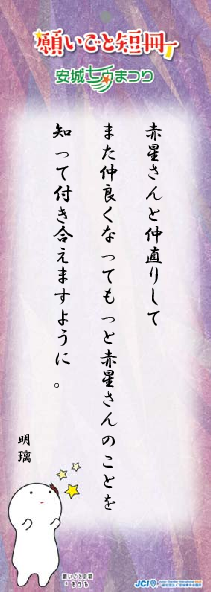 願いごと短冊
安城七夕まつり
赤星さんと仲直りして
また仲良くなってもっと赤星さんのことを
知って付き合えますように。
明璃
JCI